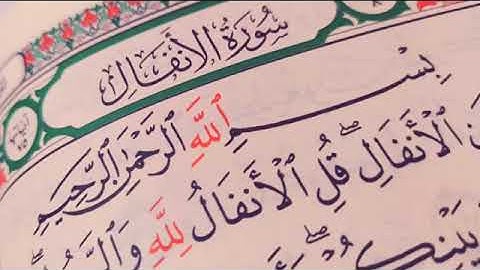 سُورَةُ الأَنفَالِ
بِسْمِ ٱللَّهِ ٱلرَّحْمَٰنِ ٱلرَّحِيمِ
ٱلْأَنفَالِۖ قُلِ ٱلْأَنفَالُ لِلَّهِ وَٱلرَّ